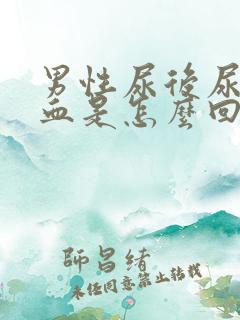 男性尿後尿
血是怎麼回
師昌緒
未经同意禁止转载